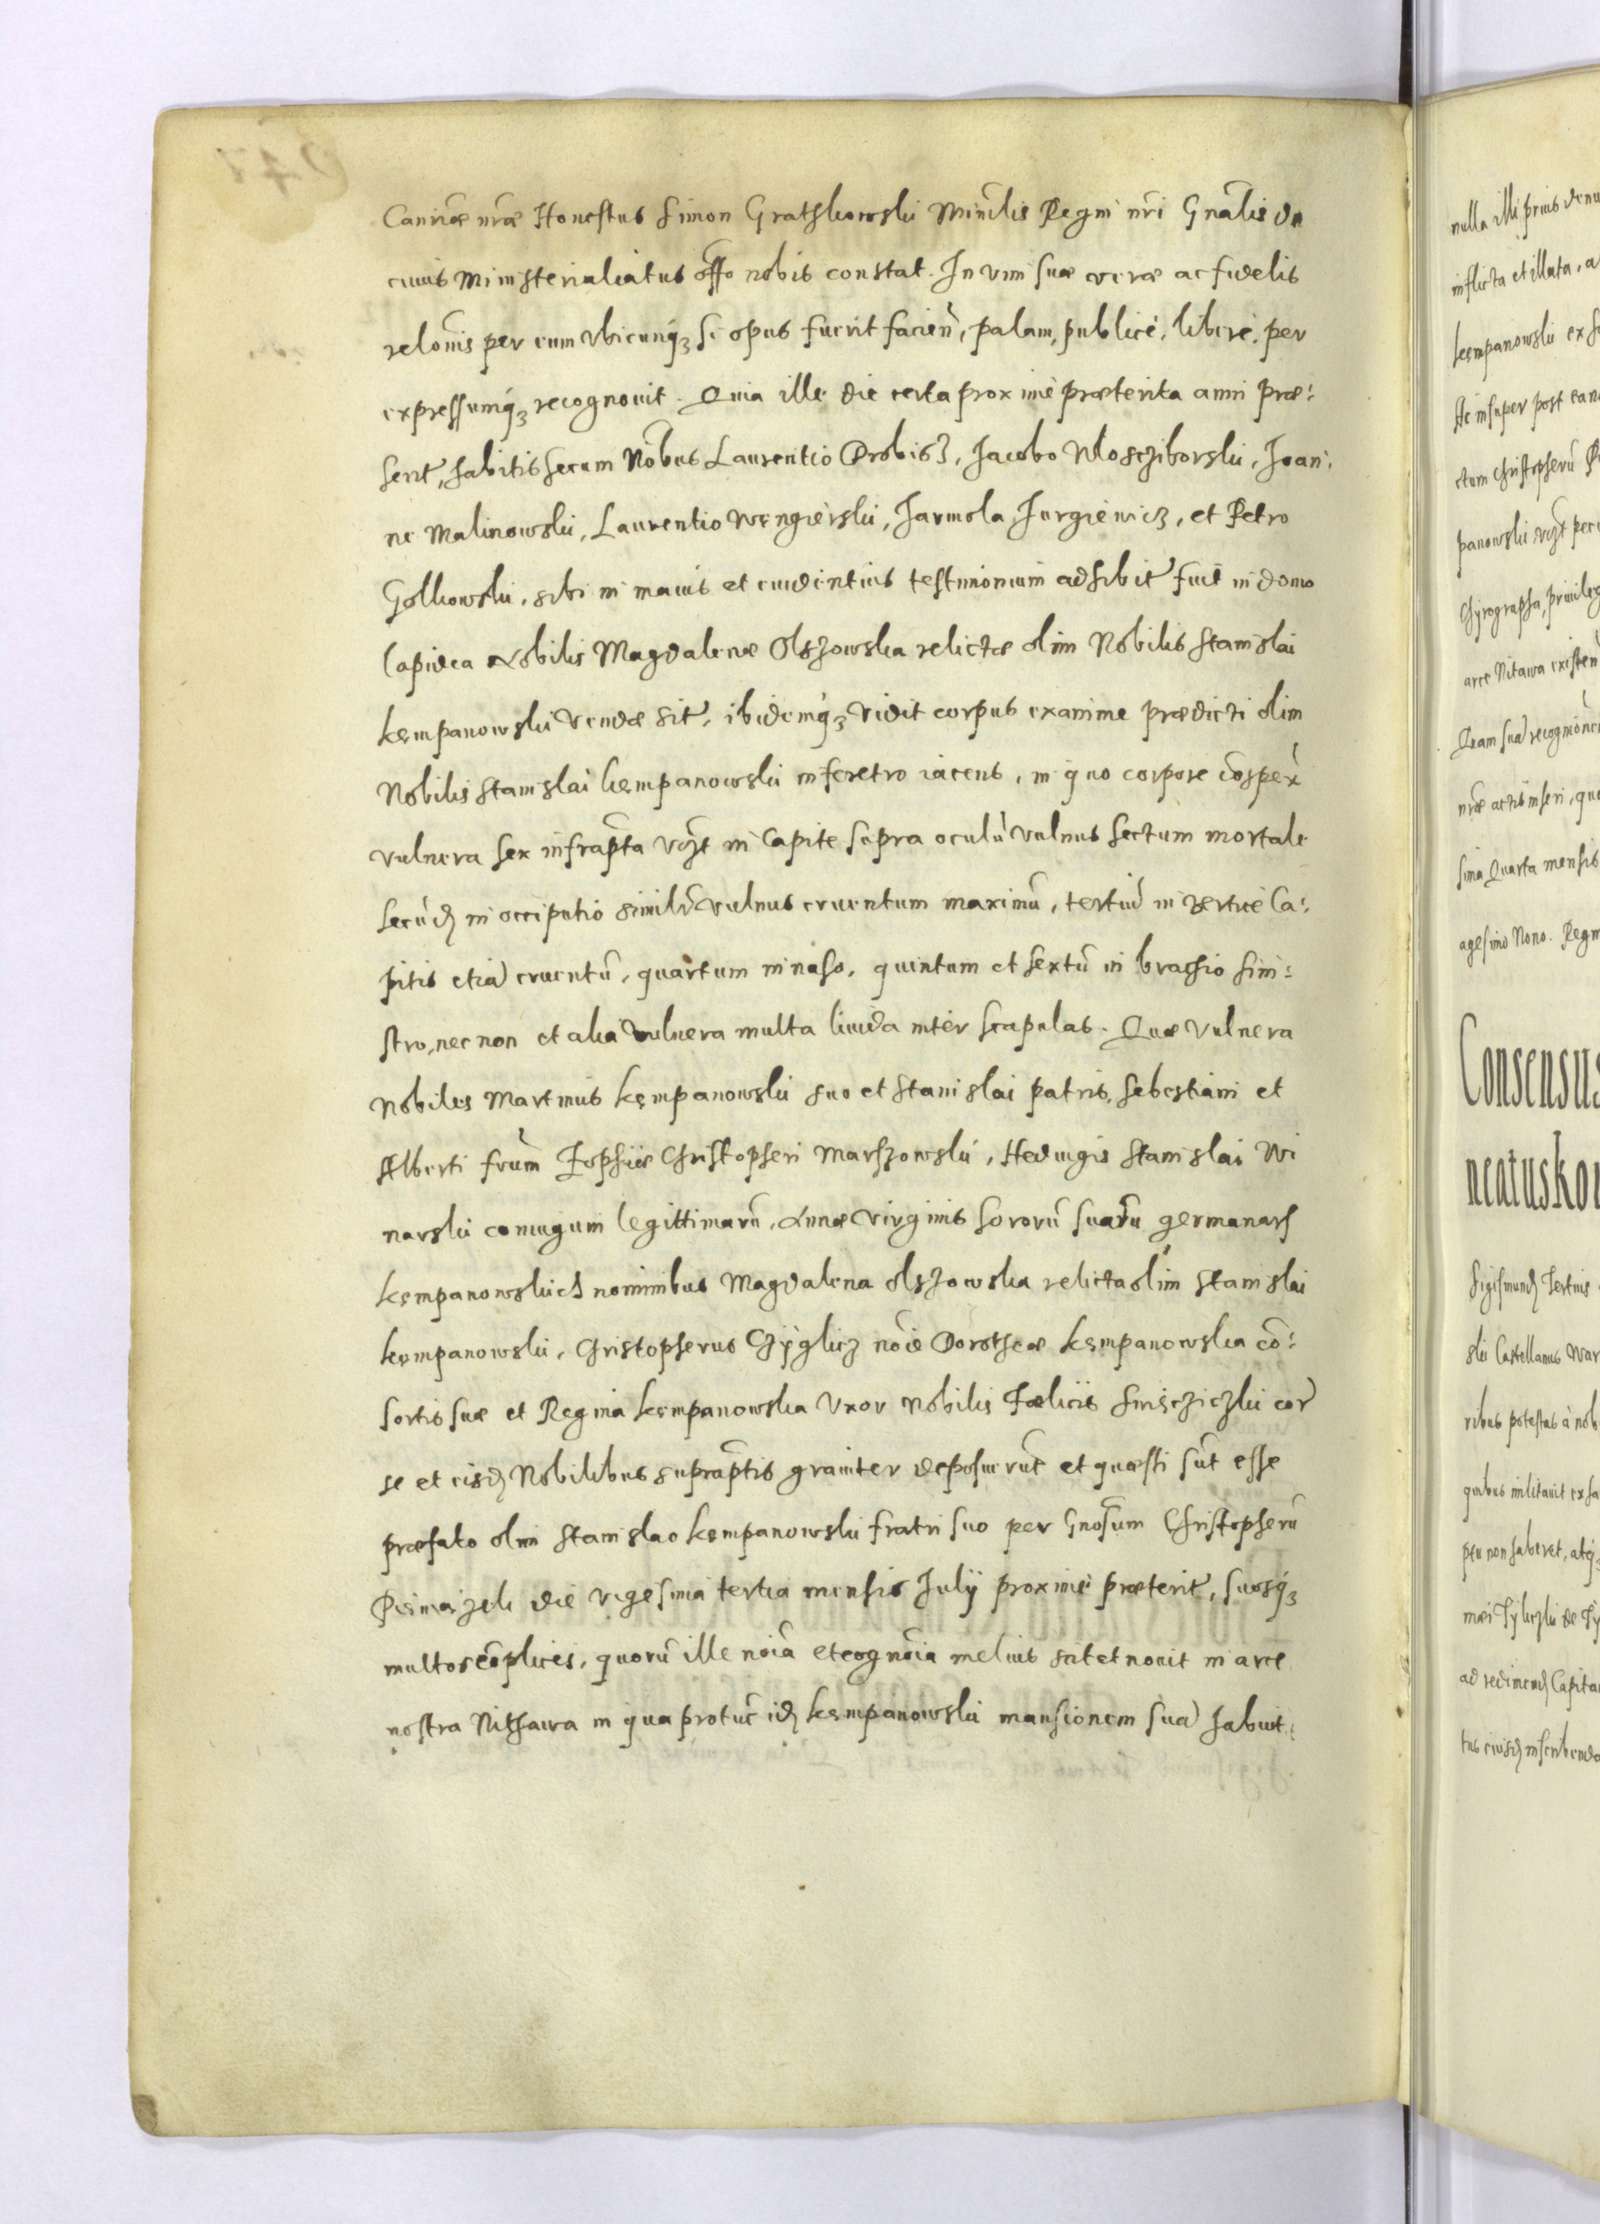 Canriæ nræ Honestus Simon Grathkowski Minrilis Regni nri Gnalis de
cuius Ministerialiatus offo nobis constat. In vim suæ veræ ac fidelis
relonis per eum vbicunq3 se opus fuerit facien, palam, publicè, liberè, per
expressumq3 recognouit. Quia ille die certa proximè præterita anni præ-
sent, habitis secum Nobus Laurentio Drobis3, Jacobo Wloscziborski, Joan-
ne Malinowski, Laurentio Węngierski, Jarmola Jurgiewicz, et Petro
Golkowski, sibi in maius et euidentius testimonium adhibit fuit in domo
Lapidea Nobilis Magdalenæ Olszowska relictæ olim Nobilis Stanislai
Kęmpanowski Vendæ sit, ibidemq3 vidit corpus exanime prædicti olim
Nobilis Stanislai Kęmpanowski in feretro iacens, in quo corpore cospex
vulnera sex infrapta vczt in Capite supra oculu vulnus sectum mortale
secud in occipitio simile vulnus cruentum maximu, tertiu in vertice Ca-
pitis etia cruentu, quartum in naso, quintum et sextu in brachio sini-
stro, nec non et alia vulnera multa liuida inter scapulas. Quæ vulnera
Nobiles Martinus Kęmpanowski suo et Stanislai patris, Sebestiani et
Alberti frum Zophiæ Christopheri Marszowski, Heduigis Stanislai Wi
narski coniugum legittimaru, Annæ virginis sororu suaru germanar
Kęmpanowskich nominibus Magdalena Olszowska relicta olim Stanislai
Kęmpanowski, Christopherus Czyglicz noie Dorotheæ Kęmpanowska co-
sortis suæ et Regina Kęmpanowska Vxor Nobilis Fælicis cor
se et eisd Nobilibus supraptis grauiter deposuerut et quæsti sut esse
præfato olim Stanislao Kęmpanowski fratri suo per Gnosum Christopheru
die vigesima tertia mensis Julij proximè præterit, suosq3
multos coplices, quoru ille noia et cognoia melius scit et nouit in arce
nostra Nithawa in qua protuc id Kęmpanowski mansionem sua habuit.
nulla illi prius
inflicta et illata,
Kęmpanowski ex
Ac insuper post
ctum Christopheru
panowski vczt
Chyrographa,
arce Nitawa
Quam sua
nræ actis inseri,
sima Quarta mensis
agesimo Nono.
Consensus
Sigismund Tertius
ski Castellanus
ribus potestas à
quibus militauit
non haberet,
ad redimend